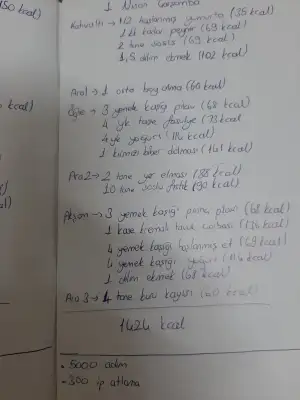 150 kcal)
1 Nisan Çarşamba
Kahvaltı → 1/2 haşlanmış yumurta (35 kcal)
1 kk kadar peynir (69 kcal)
2 tane sosis (69 kcal)
1,5 dilim ekmek (102 kcal)
Ara1 → 1 orta boy elma (60 kcal)
Öğle → 3 yemek kaşığı pilav (68 kcal)
kcal)
4 yk taze fasulye (73 kcal
4 yk yoğurt (114 kcal)
1 kırmızı biber dolması (141 kcal)
Ara2 → 2 tane yer elması (88 kcal)
10 tane fıstık (90 kcal)
Akşam → 3 yemek kaşığı pirinç pilavı (68 kcal)
1 kase kremalı tavuk çorbası (134 kcal)
4 yemek kaşığı haşlanmış et (69 kcal)
4 yemek kaşığı yoğurt (114 kcal)
1 dilim ekmek (68 kcal)
Ara 3 → 4 tane kuru kayısı (60 kcal)
1424 kcal
. 5000 adım
- 300 ip atlama